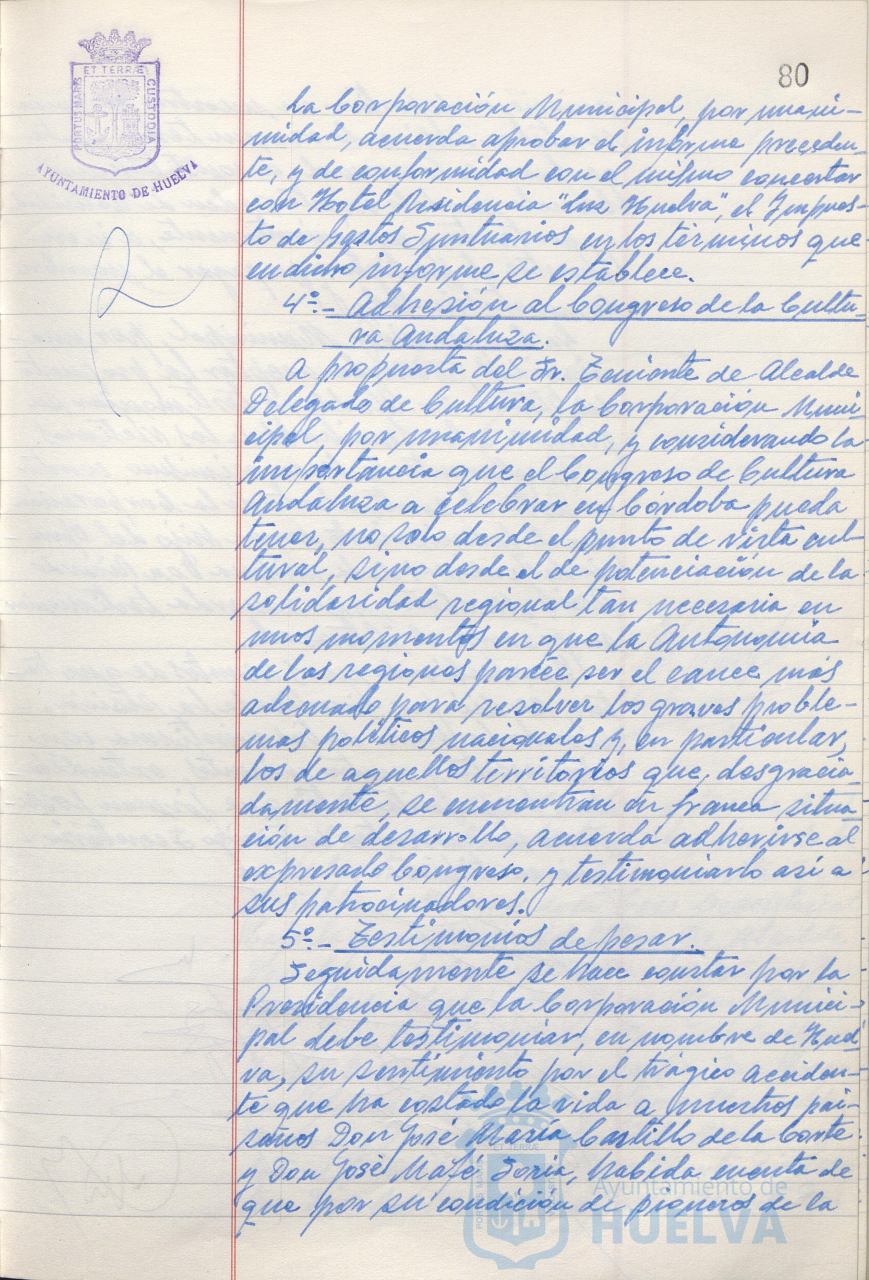 80
ET TERRÆ
PORTUS MARIS
CUSTODIA
AYUNTAMIENTO DE HUELVA
La Corporación Municipal, por unani-
midad, acuerda aprobar el informe preceden-
te, y de conformidad con el mismo concertar
con Hotel Residencia "Luz Huelva", el Impues-
to de Gastos Suntuarios en los términos que
en dicho informe se establece.
4º.- Adhesión al Congreso de la Cultu-
ra Andaluza.
A propuesta del Sr. Teniente de Alcalde
Delegado de Cultura, la Corporación Muni-
cipal, por unanimidad, y considerando la
importancia que el Congreso de Cultura
Andaluza a celebrar en Córdoba pueda
tener, no solo desde el punto de vista cul-
tural, sino desde el de potenciación de la
solidaridad regional tan necesaria en
unos momentos en que la Autonomía
de las regiones parece ser el cauce más
adecuado para resolver los graves proble-
mas políticos nacionales y, en particular,
los de aquellos territorios que, desgracia-
damente, se encuentran en franca situa-
ción de desarrollo, acuerda adherirse al
expresado Congreso, y testimoniarlo así a
sus patrocinadores.
5º.- Testimonios de pesar.
Seguidamente se hace constar por la
Presidencia que la Corporación Munici-
pal debe testimoniar, en nombre de Huel-
va, su sentimiento por el trágico acciden-
te que ha costado la vida a nuestros pai-
sanos Don José María Castillo de la Corte
y Don José Soria, habida cuenta de
que por su condición de pioneros de la
Ayuntamiento de
HUELVA